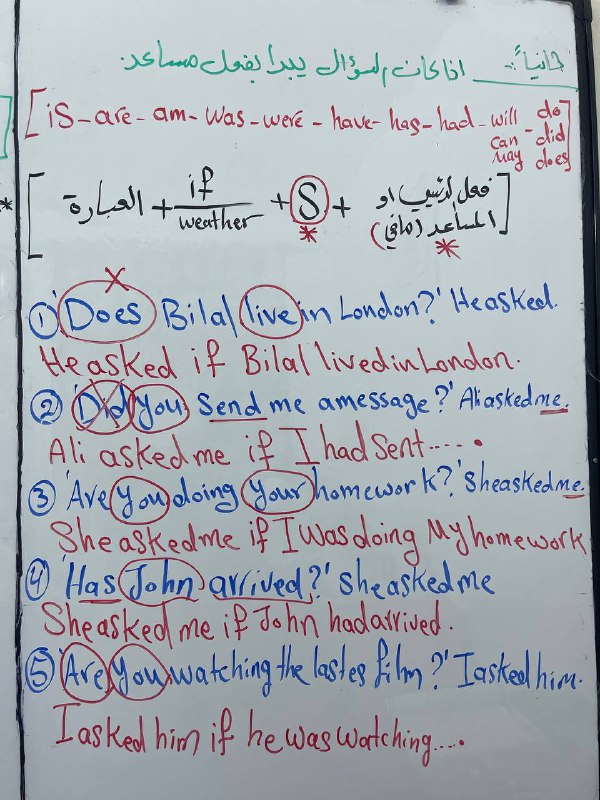 ثانياً:- اذا كان السؤال يبدا بفعل مساعد.
[is - are - am - was - were - have - has - had - will do
can - did
may does]
[العبارة + if + S + فعل رئيسي او
weather المساعد (ماضي)]
① 'Does Bilal live in London?' He asked.
He asked if Bilal lived in London.
② 'Did you Send me a message?' Ali asked me.
Ali asked me if I had Sent.....
③ 'Are you doing your homework?' She asked me.
She asked me if I was doing My homework
④ 'Has John arrived?' She asked me
She asked me if John had arrived.
⑤ 'Are You watching the lastes film?' I asked him.
I asked him if he was watching....